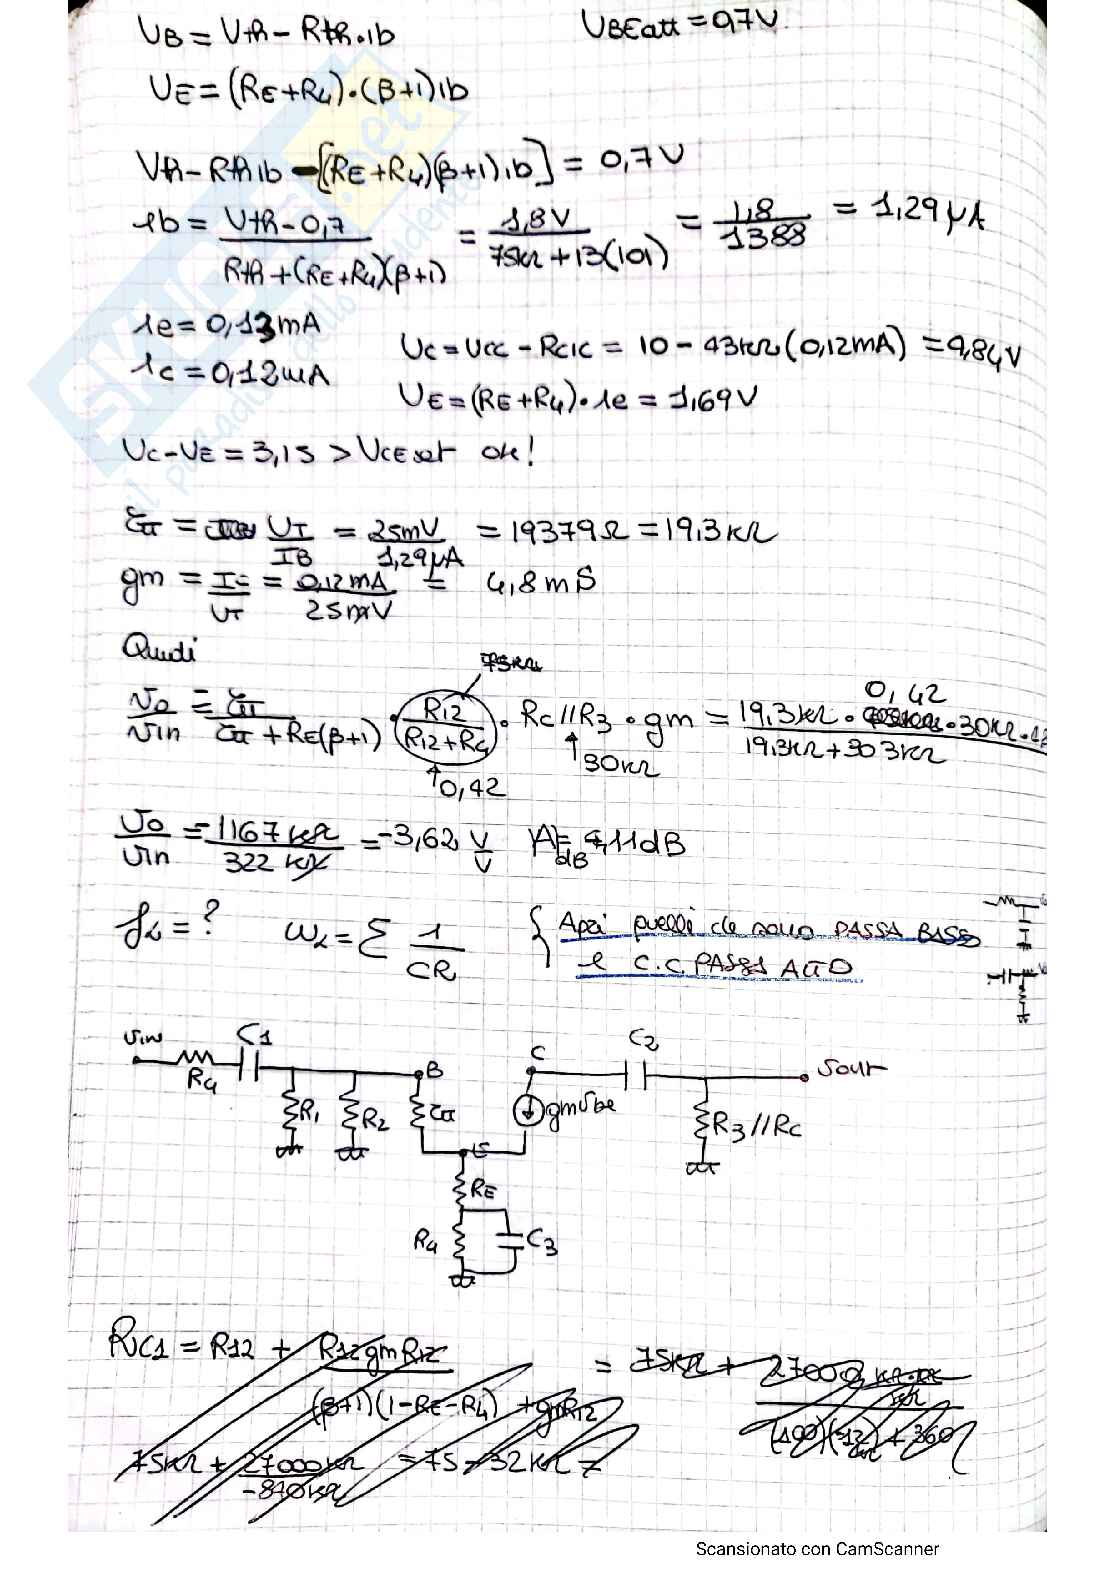 VB = Vth - Rth·ib    VBEatt = 0,7V
VE = (RE+R4)·(β+1)ib
Vth - Rth ib - [(RE+R4)(β+1)ib] = 0,7V
ib = Vth - 0,7 / Rth + (RE+R4)(β+1) = 1,8V / 75kΩ + 13(101) = 1,8 / 1388 = 1,29 μA
ie = 0,13mA
ic = 0,12mA
VC = VCC - RCIC = 10 - 43kΩ(0,12mA) = 4,84V
VE = (RE+R4)·ie = 1,69V
VC - VE = 3,15 > VCEsat ok!
rπ = VT / IB = 25mV / 1,29μA = 19379Ω = 19,3kΩ
gm = IC / VT = 0,12mA / 25mV = 4,8mS
Quindi
75kΩ
vo / vin = rπ / rπ + RE(β+1) · R12 / R12+R4 · RC//R3 · gm = 19,3kΩ · 0,42 · 30kΩ · / 19,3kΩ + 303kΩ
0,42
30kΩ
vo / vin = -1167kΩ / 322kΩ = -3,62 V/V    AdB = 4,11dB
fL = ?    ωL = Σ 1 / CR    { Apri quelli che sono PASSA BASSO
e C.C. PASSA ALTO
vin R4 C1 R1 R2 B rπ C gmvbe C2 vout
R3//RC
E
RE
R4 C3
RVC1 = R12 + R12gmR12 / (β+1)(1-RE-R4) + gmR12 = 75kΩ + 27000
75kΩ + 27000kΩ / -840kΩ = 75 - 32kΩ
Scansionato con CamScanner